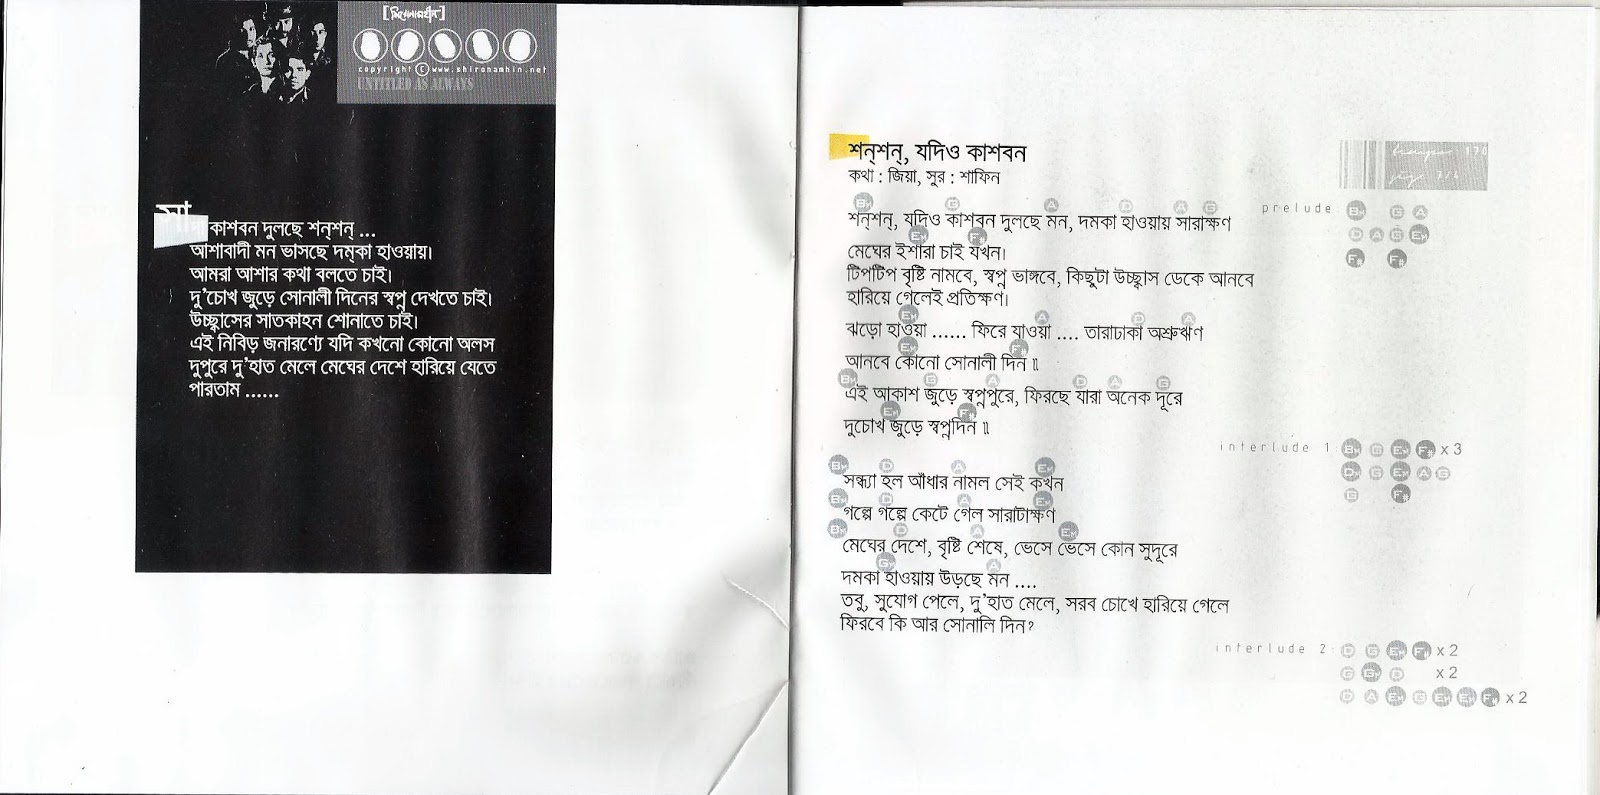 [শিরোনামহীন]
copyright © www.shironamhin.net
UNTITLED AS ALWAYS
সারা
কাশবন দুলছে শন্‌শন্‌ ...
আশাবাদী মন ভাসছে দম্‌কা হাওয়ায়।
আমরা আশার কথা বলতে চাই।
দু'চোখ জুড়ে সোনালী দিনের স্বপ্ন দেখতে চাই।
উচ্ছ্বাসের সাতকাহন শোনাতে চাই।
এই নিবিড় জনারণ্যে যদি কখনো কোনো অলস
দুপুরে দু'হাত মেলে মেঘের দেশে হারিয়ে যেতে
পারতাম ......
শন্‌শন্‌, যদিও কাশবন
কথা : জিয়া, সুর : শাফিন
tempo 170
7/4
prelude Bm G A
D A G Em
F# F#
Bm G A D A G
শন্‌শন্‌, যদিও কাশবন দুলছে মন, দমকা হাওয়ায় সারাক্ষণ
Em F#
মেঘের ইশারা চাই যখন।
টিপটিপ বৃষ্টি নামবে, স্বপ্ন ভাঙ্গবে, কিছুটা উচ্ছ্বাস ডেকে আনবে
হারিয়ে গেলেই প্রতিক্ষণ।
Em A D A
ঝড়ো হাওয়া ...... ফিরে যাওয়া .... তারাঢাকা অশ্রুঋণ
Em F#
আনবে কোনো সোনালী দিন ॥
Bm G A D A G
এই আকাশ জুড়ে স্বপ্নপুরে, ফিরছে যারা অনেক দূরে
Em F#
দুচোখ জুড়ে স্বপ্নদিন ॥
interlude 1: Bm G Em F# x 3
D G Em A G
G F#
Bm D A Em
সন্ধ্যা হল আঁধার নামল সেই কখন
Bm D A Em
গল্পে গল্পে কেটে গেল সারাটাক্ষণ
Bm D A Em
মেঘের দেশে, বৃষ্টি শেষে, ভেসে ভেসে কোন সুদূরে
Gm A
দমকা হাওয়ায় উড়ছে মন ....
তবু, সুযোগ পেলে, দু'হাত মেলে, সরব চোখে হারিয়ে গেলে
ফিরবে কি আর সোনালি দিন?
interlude 2: D G Em F# x 2
G Gm D x 2
D A Em G Em Em F# x 2